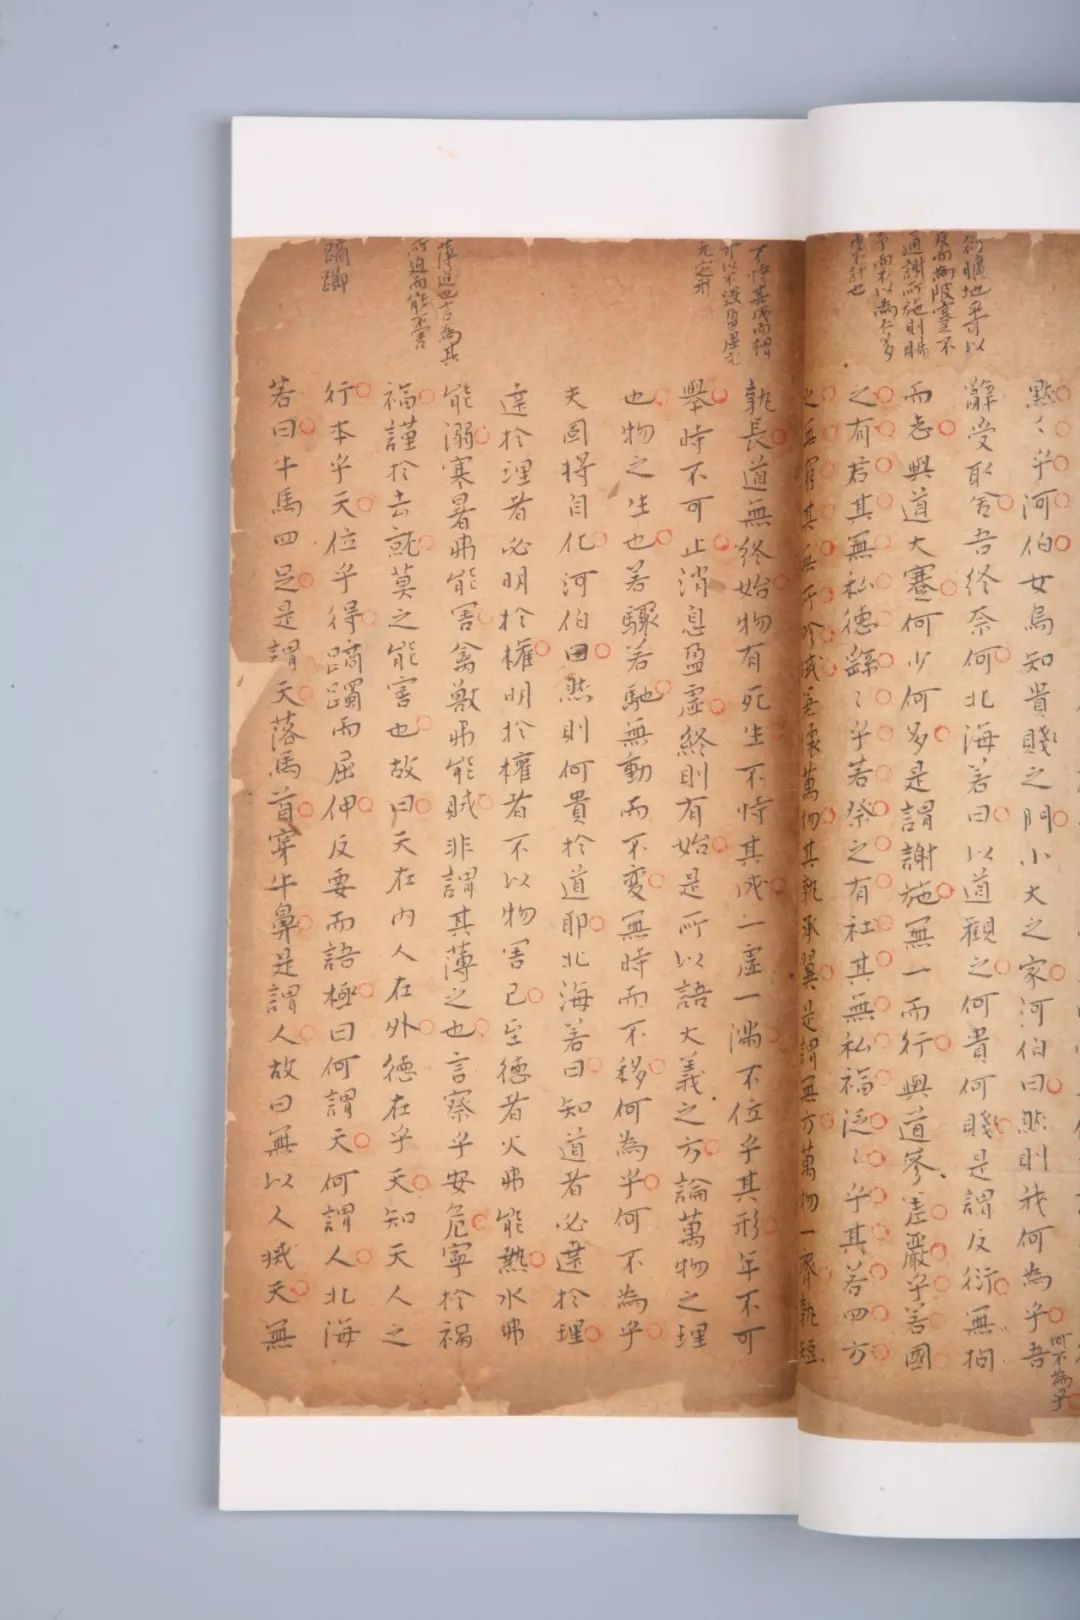 默〻乎河伯女烏知貴賤之門小大之家河伯曰然則我何為乎吾
何不為乎
辭受取舍吾終奈何北海若曰以道觀之何貴何賤是謂反衍無拘
而志與道大蹇何少何多是謂謝施無一而行與道參差嚴乎若國
之有君其無私德繇〻乎若祭之有社其無私福泛〻乎其若四方
之無窮其無所畛域兼懷萬物其孰承翼是謂無方萬物一齊孰短
孰長道無終始物有死生不恃其成一虛一滿不位乎其形年不可
舉時不可止消息盈虛終則有始是所以語大義之方論萬物之理
也物之生也若驟若馳無動而不變無時而不移何為乎何不為乎
夫固將自化河伯曰然則何貴於道耶北海若曰知道者必達於理
達於理者必明於權明於權者不以物害己至德者火弗能熱水弗
能溺寒暑弗能害禽獸弗能賊非謂其薄之也言察乎安危寧於禍
福謹於去就莫之能害也故曰天在內人在外德在乎天知天人之
行本乎天位乎得蹢躅而屈伸反要而語極曰何謂天何謂人北海
若曰牛馬四足是謂天落馬首穿牛鼻是謂人故曰無以人滅天無
反而為陂蹇不
通謝所施則賜
薄迫也言為其
所迫而能不害
蹢躑